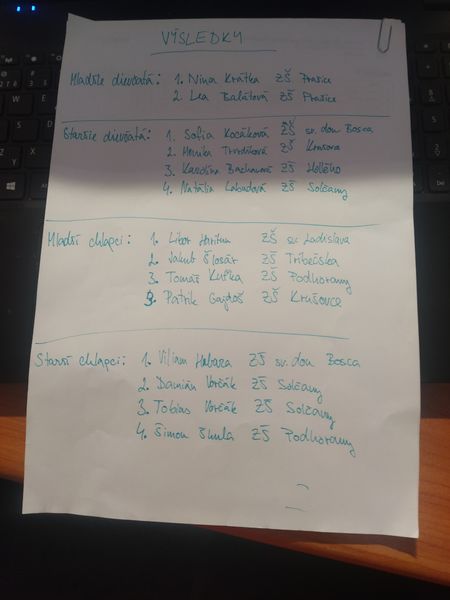 VÝSLEDKY
Mladšie dievčatá: 1. Nina Krátka ZŠ Prašice
2. Lea Balátová ZŠ Prašice
Staršie dievčatá: 1. Sofia Kocáková ZŠ sv. don Bosca
2. Monika Tvrdíková ZŠ
3. Karolína Bachanová ZŠ Hollého
4. Natália Labudová ZŠ Solčany
Mladší chlapci: 1. Libor ZŠ sv. Ladislava
2. Jakub Šlosár ZŠ Tribečska
3. Tomáš Kuška ZŠ Podhorany
3. Patrik Gajdoš ZŠ Krušovce
Starší chlapci: 1. Viliam Habaza ZŠ sv. don Bosca
2. Damián Vorčák ZŠ Solčany
3. Tobias Vorčák ZŠ Solčany
4. Šimon Škula ZŠ Podhorany